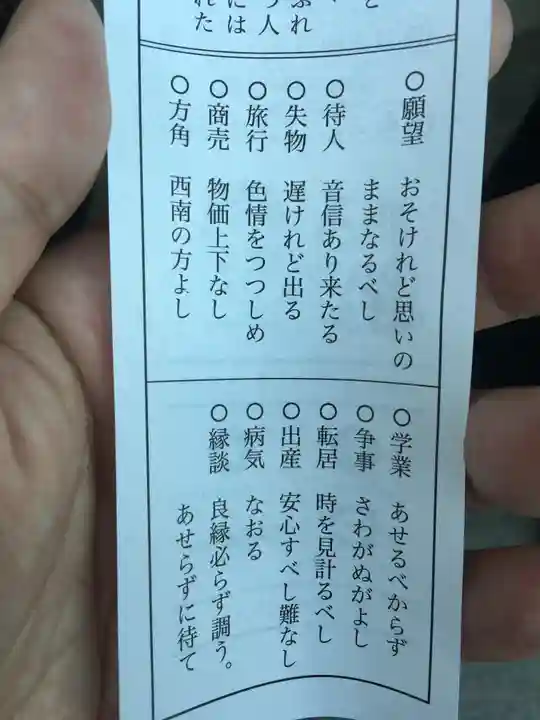 と
ぶれ
う人
には
れた
○願望 おそけれど思いの
ままなるべし
○待人 音信あり来たる
○失物 遅けれど出る
○旅行 色情をつつしめ
○商売 物価上下なし
○方角 西南の方よし
○学業 あせるべからず
○争事 さわがぬがよし
○転居 時を見計るべし
○出産 安心すべし難なし
○病気 なおる
○縁談 良縁必らず調う。
あせらずに待て